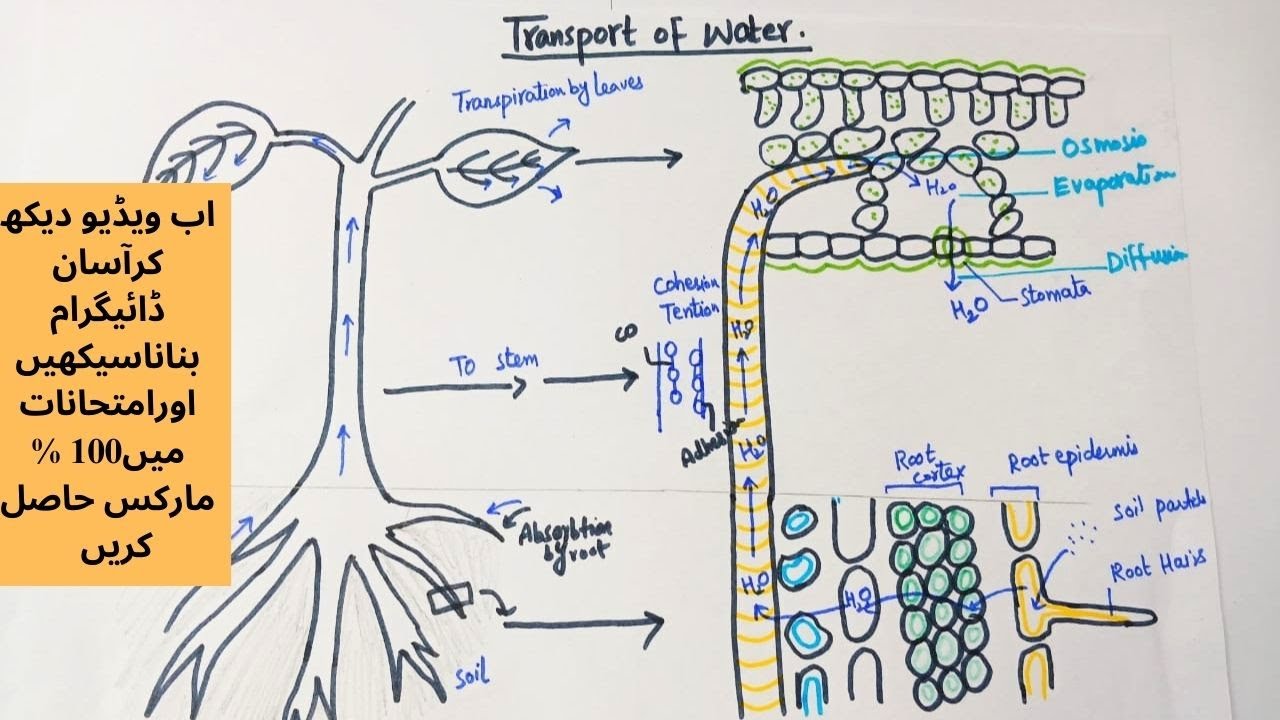 Transport of Water.
Transpiration by leaves
Osmosis
H₂O
Evaporation
H₂O
Diffusion
Stomata
H₂O
Cohesion
Tention
H₂O
CO
To stem
Adhesion
H₂O
Root
cortex
Root epidermis
Soil particls
Absorbtion
by root
Root Hairs
H₂O
H₂O
soil
اب ویڈیو دیکھ
کرآسان
ڈائیگرام
بناناسیکھیں
اورامتحانات
میں100 %
مارکس حاصل
کریں